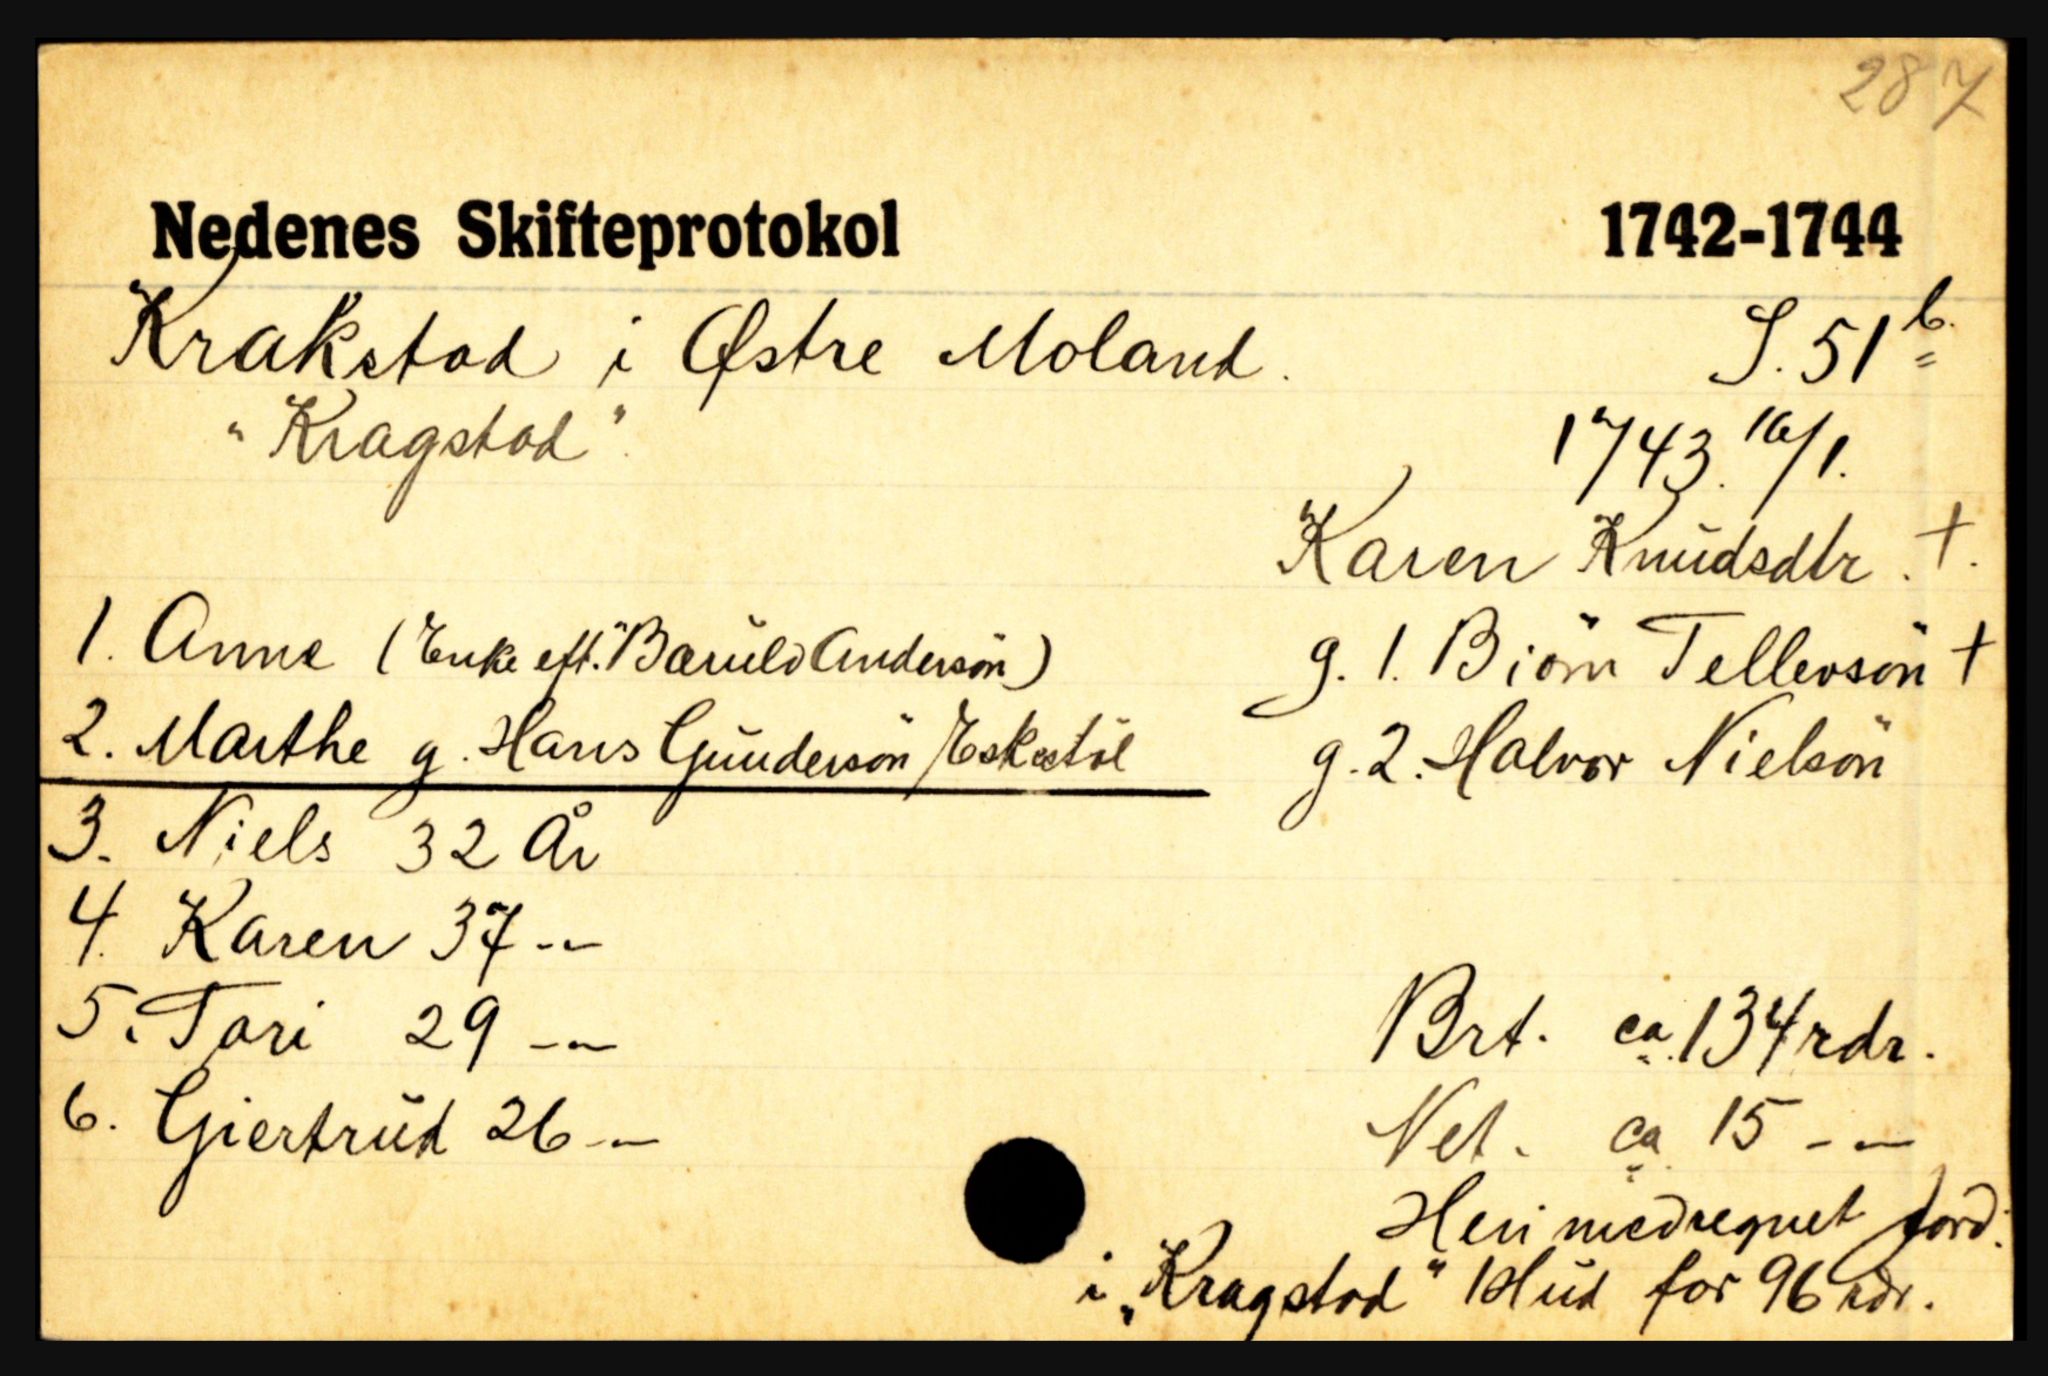 287
Nedenes Skifteprotokol 1742-1744
Krakstad i Østre Moland. S. 51 b.
"Kragstad".
1743. 16/1.
Karen Knudsdtr. +.
1. Anne (Enke eft. Baruld Andersön) g. 1. Biörn Tellevsön +
2. Marthe g. Hans Gundersön Eskestöl g. 2. Halvor Nielsön
3. Niels 32 År
4. Karen 37 -"-
5. Tari 29 -"-
6. Giertrud 26 -"-
Brt. ca. 134 rdr.
Net. ca. 15 -"-
Heri medregnet Jord:
i "Kragstad" 1 Hud for 96 rdr.